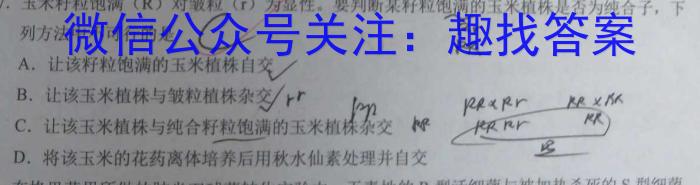 玉米籽粒饱满（R）对皱粒（r）为显性。要判断某籽粒饱满的玉米植株是否为纯合子，下
列方法
微信公众号关注：趣找答案
A．让该籽粒饱满的玉米植株自交
B．让该玉米植株与皱粒植株杂交 rr
RR×Rr RR×RR
C．让该玉米植株与纯合籽粒饱满的玉米植株杂交 RR
RR Rr RR
D．将该玉米的花药离体培养后用秋水仙素处理并自交